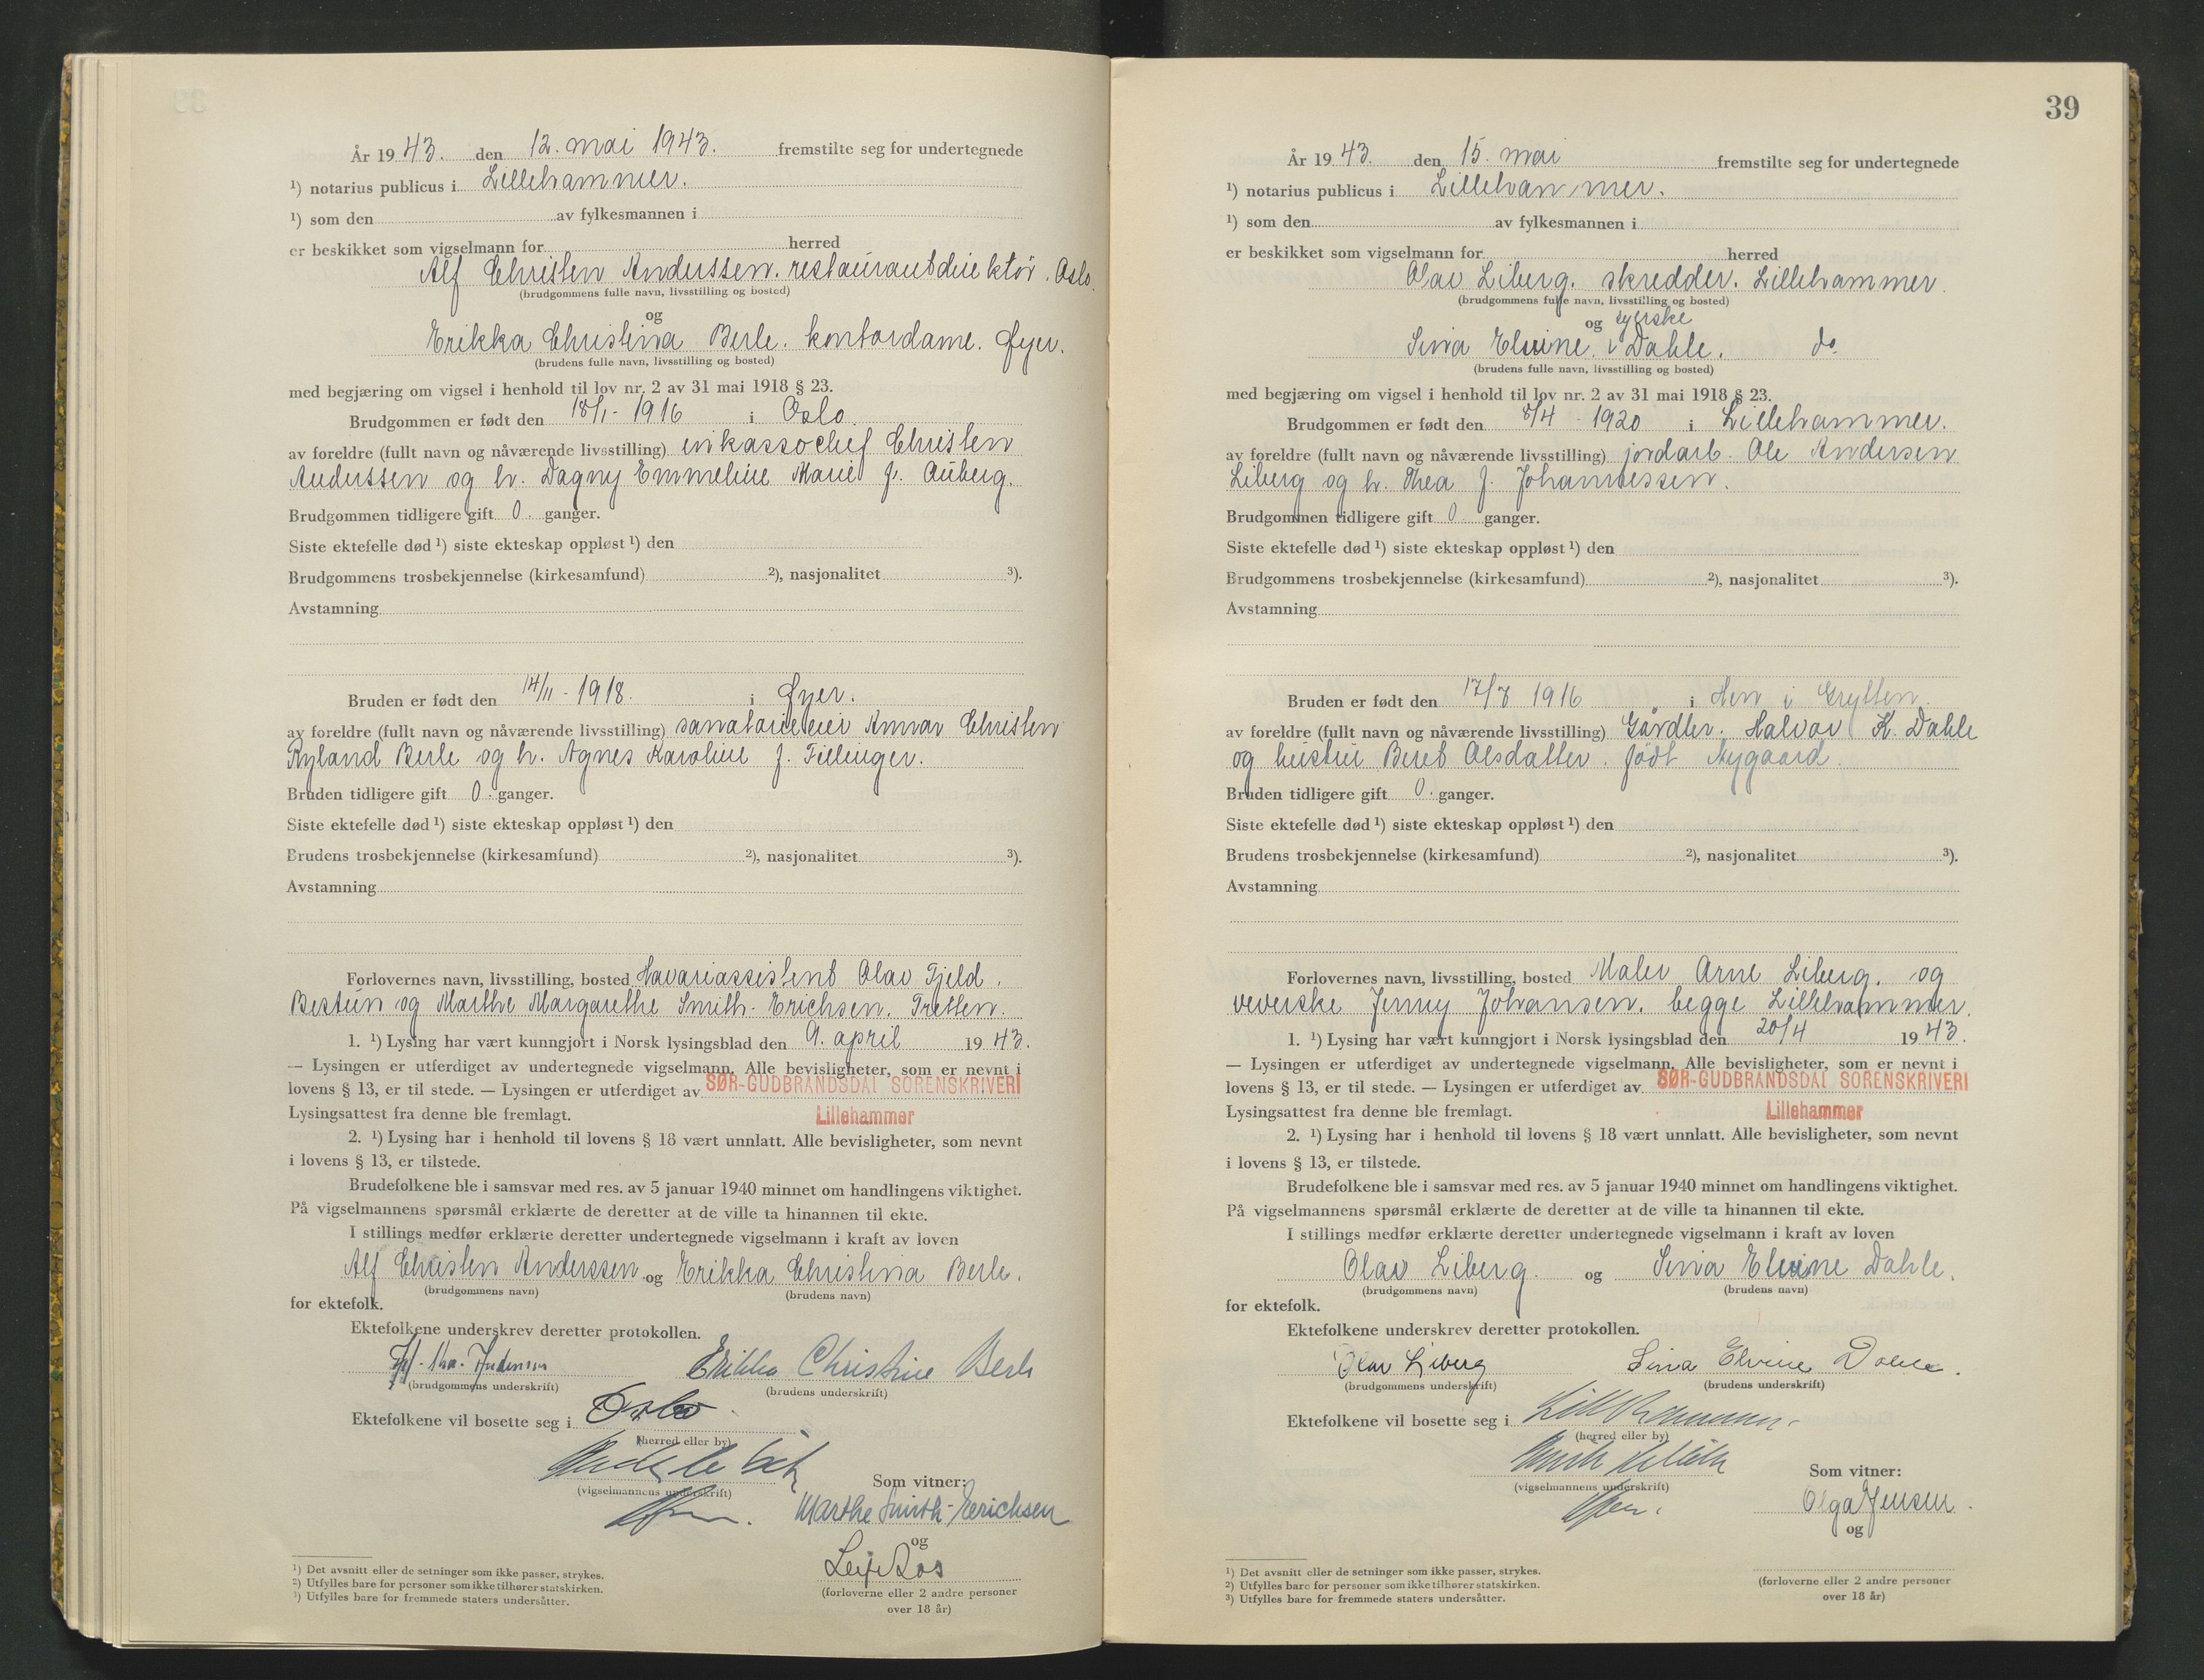 År 1943. den 12. mai 1943. fremstilte seg for undertegnede
¹) notarius publicus i Lillehammer.
¹) som den av fylkesmannen i
er beskikket som vigselmann for herred
Alf Christen Anderssen. restaurantdirektør. Oslo.
(brudgommens fulle navn, livsstilling og bosted)
og
Erikka Christina Berle. kontordame. Øyer.
(brudens fulle navn, livsstilling og bosted)
med begjæring om vigsel i henhold til lov nr. 2 av 31 mai 1918 § 23.
Brudgommen er født den 18/1 - 1916 i Oslo.
av foreldre (fullt navn og nåværende livsstilling) inkassochef Christen
Anderssen og h. Dagny Emmeline Marie f. Auberg.
Brudgommen tidligere gift 0. ganger.
Siste ektefelle død ¹) siste ekteskap oppløst ¹) den
Brudgommens trosbekjennelse (kirkesamfund) ²), nasjonalitet ³).
Avstamning
Bruden er født den 14/11 - 1918. i Øyer.
av foreldre (fullt navn og nåværende livsstilling) sanatorieeier Annar Christen
Ryland Berle og h. Agnes Karoline f. Fillinger.
Bruden tidligere gift 0. ganger.
Siste ektefelle død ¹) siste ekteskap oppløst ¹) den
Brudens trosbekjennelse (kirkesamfund) ²), nasjonalitet ³).
Avstamning
Forlovernes navn, livsstilling, bosted Havariassistent Olav Fjeld.
Bestun og Marthe Margarethe Smith-Erichsen. Tretten.
1. ¹) Lysing har vært kunngjort i Norsk lysingsblad den 9. april 1943.
— Lysingen er utferdiget av undertegnede vigselmann. Alle bevisligheter, som er nevnt i
lovens § 13, er til stede. — Lysingen er utferdiget av SØR-GUDBRANDSDAL SORENSKRIVERI
Lysingsattest fra denne ble fremlagt. Lillehammer
2. ¹) Lysing har i henhold til lovens § 18 vært unnlatt. Alle bevisligheter, som nevnt
i lovens § 13, er tilstede.
Brudefolkene ble i samsvar med res. av 5 januar 1940 minnet om handlingens viktighet.
På vigselmannens spørsmål erklærte de deretter at de ville ta hinannen til ekte.
I stillings medfør erklærte deretter undertegnede vigselmann i kraft av loven
Alf Christen Anderssen og Erikka Christina Berle.
(brudgommens navn) (brudens navn)
for ektefolk.
Ektefolkene underskrev deretter protokollen.
Erikka Christine Berle
(brudgommens underskrift) (brudens underskrift)
Ektefolkene vil bosette seg i Oslo
(herred eller by)
(vigselmannens underskrift)
Som vitner:
Marthe Smith-Erichsen
og
Leif Aos
(forloverne eller 2 andre personer
over 18 år)
¹) Det avsnitt eller de setninger som ikke passer, strykes.
²) Utfylles bare for personer som ikke tilhører statskirken.
³) Utfylles bare for fremmede staters undersåtter.
39
År 1943. den 15. mai fremstilte seg for undertegnede
¹) notarius publicus i Lillehammer.
¹) som den av fylkesmannen i
er beskikket som vigselmann for herred
Olav Liberg. skredder. Lillehammer.
(brudgommens fulle navn, livsstilling og bosted)
og syerske
Sina Elvine Dahle. do.
(brudens fulle navn, livsstilling og bosted)
med begjæring om vigsel i henhold til lov nr. 2 av 31 mai 1918 § 23.
Brudgommen er født den 8/4 - 1920 i Lillehammer.
av foreldre (fullt navn og nåværende livsstilling) jordarb. Ole Andersen
Liberg og h. Thea f. Johannessen.
Brudgommen tidligere gift 0 ganger.
Siste ektefelle død ¹) siste ekteskap oppløst ¹) den
Brudgommens trosbekjennelse (kirkesamfund) ²), nasjonalitet ³).
Avstamning
Bruden er født den 17/7 1916 i Hen i Grytten.
av foreldre (fullt navn og nåværende livsstilling) Gårdbr. Halvor K. Dahle
og hustru Beret Olsdatter. født Nygaard.
Bruden tidligere gift 0. ganger.
Siste ektefelle død ¹) siste ekteskap oppløst ¹) den
Brudens trosbekjennelse (kirkesamfund) ²), nasjonalitet ³).
Avstamning
Forlovernes navn, livsstilling, bosted Maler Arne Liberg. og
veverske Jenny Johansen. begge Lillehammer.
1. ¹) Lysing har vært kunngjort i Norsk lysingsblad den 20/4 1943.
— Lysingen er utferdiget av undertegnede vigselmann. Alle bevisligheter, som er nevnt i
lovens § 13, er til stede. — Lysingen er utferdiget av SØR-GUDBRANDSDAL SORENSKRIVERI
Lysingsattest fra denne ble fremlagt. Lillehammer
2. ¹) Lysing har i henhold til lovens § 18 vært unnlatt. Alle bevisligheter, som nevnt
i lovens § 13, er tilstede.
Brudefolkene ble i samsvar med res. av 5 januar 1940 minnet om handlingens viktighet.
På vigselmannens spørsmål erklærte de deretter at de ville ta hinannen til ekte.
I stillings medfør erklærte deretter undertegnede vigselmann i kraft av loven
Olav Liberg. og Sina Elvine Dahle.
(brudgommens navn) (brudens navn)
for ektefolk.
Ektefolkene underskrev deretter protokollen.
Olav Liberg Sina Elvine Dahle.
(brudgommens underskrift) (brudens underskrift)
Ektefolkene vil bosette seg i Lillehammer
(herred eller by)
(vigselmannens underskrift)
Som vitner:
Olga Jensen.
og
(forloverne eller 2 andre personer
over 18 år)
¹) Det avsnitt eller de setninger som ikke passer, strykes.
²) Utfylles bare for personer som ikke tilhører statskirken.
³) Utfylles bare for fremmede staters undersåtter.